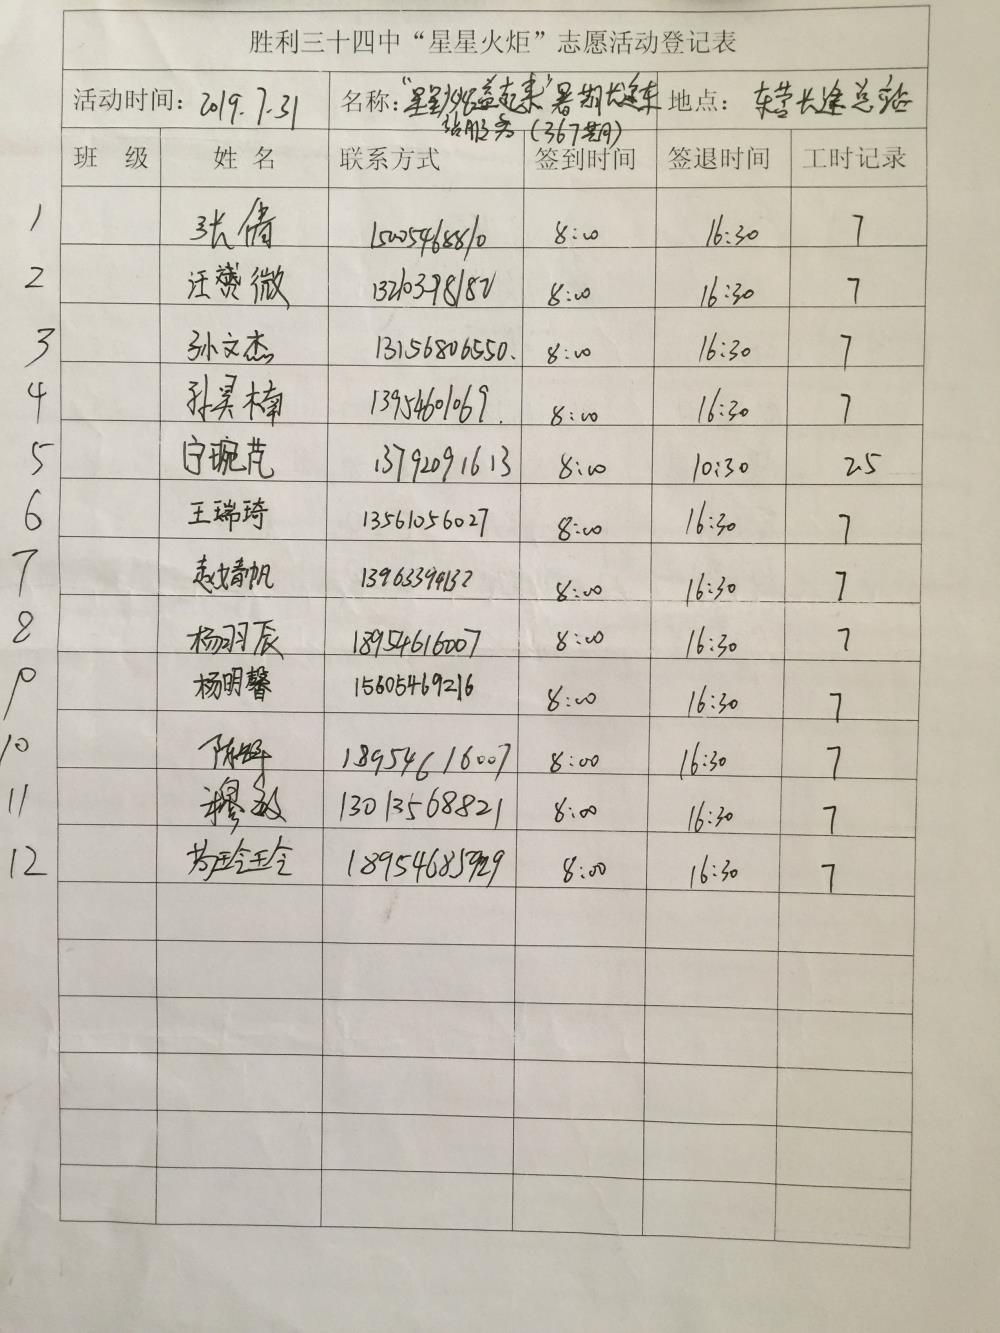 胜利三十四中“星星火炬”志愿活动登记表
活动时间: 2019.7.31 名称: “星星火炬益起来”暑期长途车 地点: 东营长途总站
站服务(367期)
班 级 姓 名 联系方式 签到时间 签退时间 工时记录
1 张倩 15005468810 8:00 16:30 7
2 汪赟微 8:00 16:30 7
3 孙文杰 13156806550. 8:00 16:30 7
4 孙昊楠 13954601069. 8:00 16:30 7
5 宁琬芃 13792091613 8:00 10:30 25
6 王瑞琦 13561056027 8:00 16:30 7
7 赵婧帆 8:00 16:30 7
8 杨羽辰 18954616007 8:00 16:30 7
9 杨明馨 15605469216 8:00 16:30 7
10 陈晔 18954616007 8:00 16:30 7
11 穆敏 13013568821 8:00 16:30 7
12 苏玲玲 18954685929 8:00 16:30 7